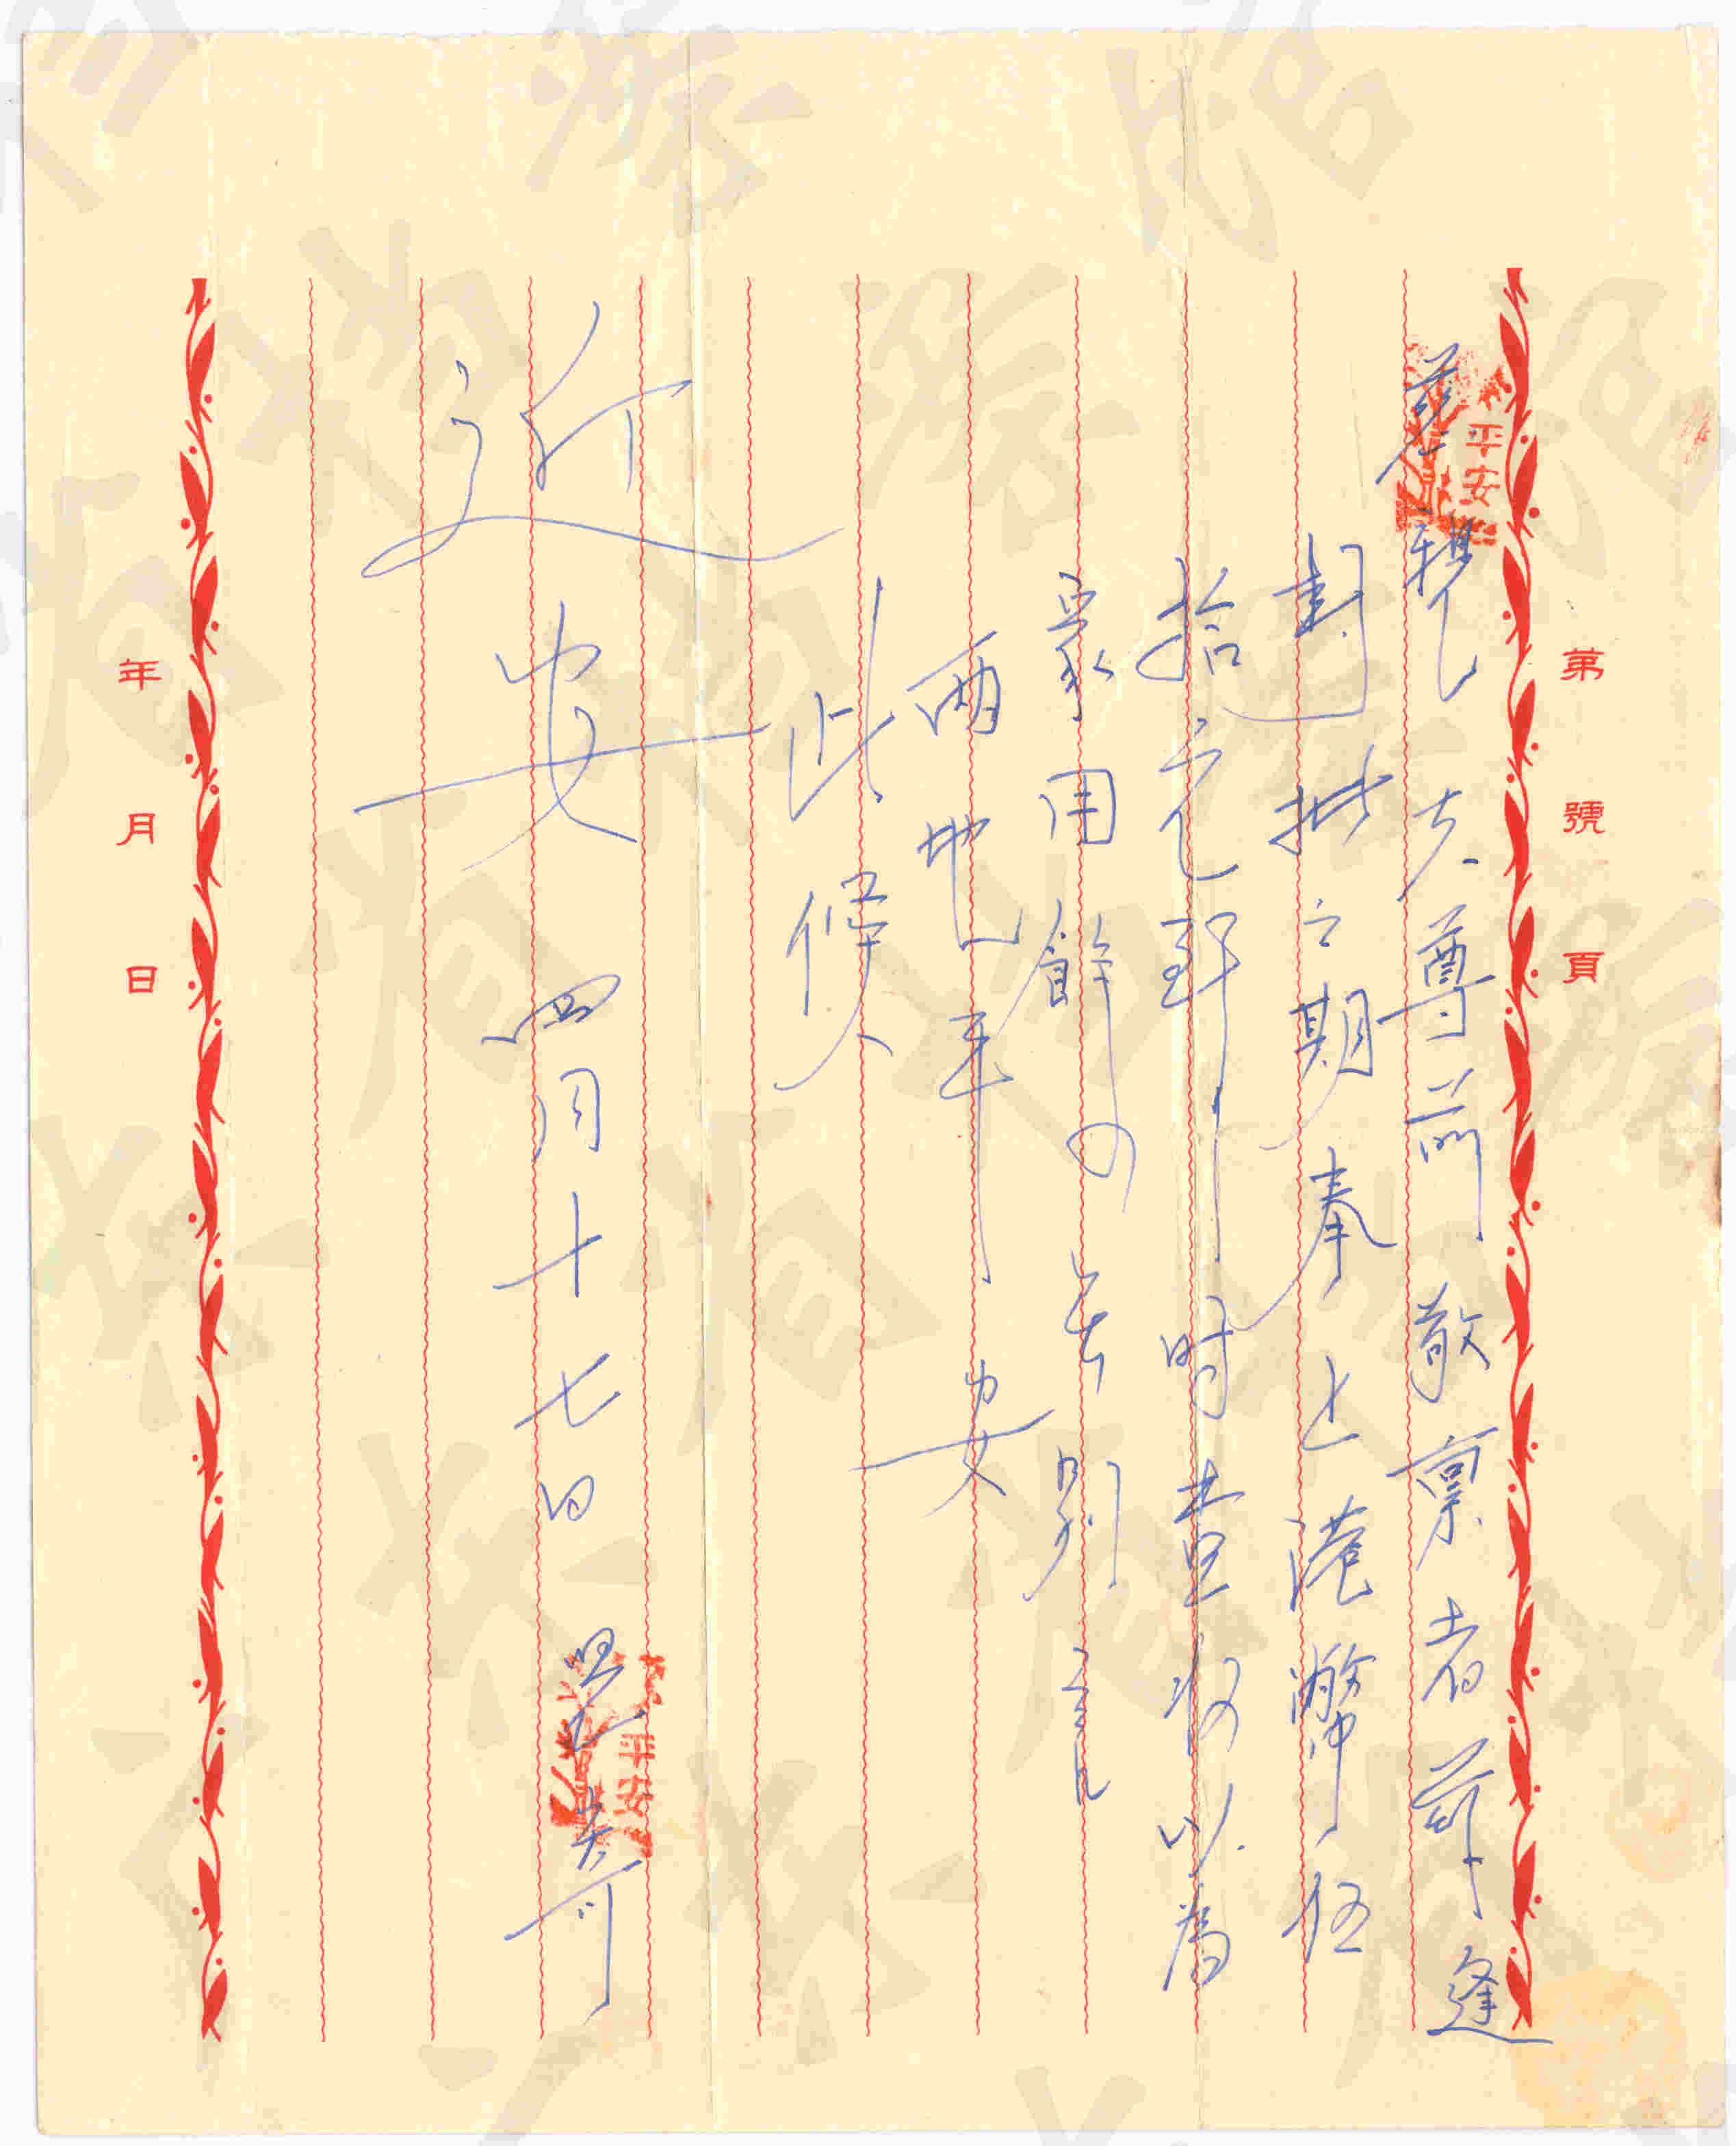 第 號 頁
大尊前敬稟者 逢
封批之期奉上港幣伍
拾元到时查收以為
家用餘の 別言
兩地平安
此候
近安
四月十七日
年 月 日
平安
平安